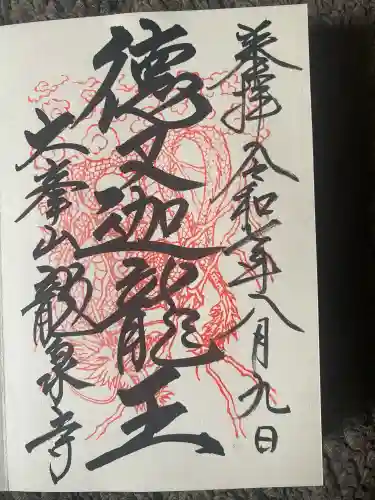 奉拝 令和六年八月九日
徳叉迦龍王
大峯山龍泉寺